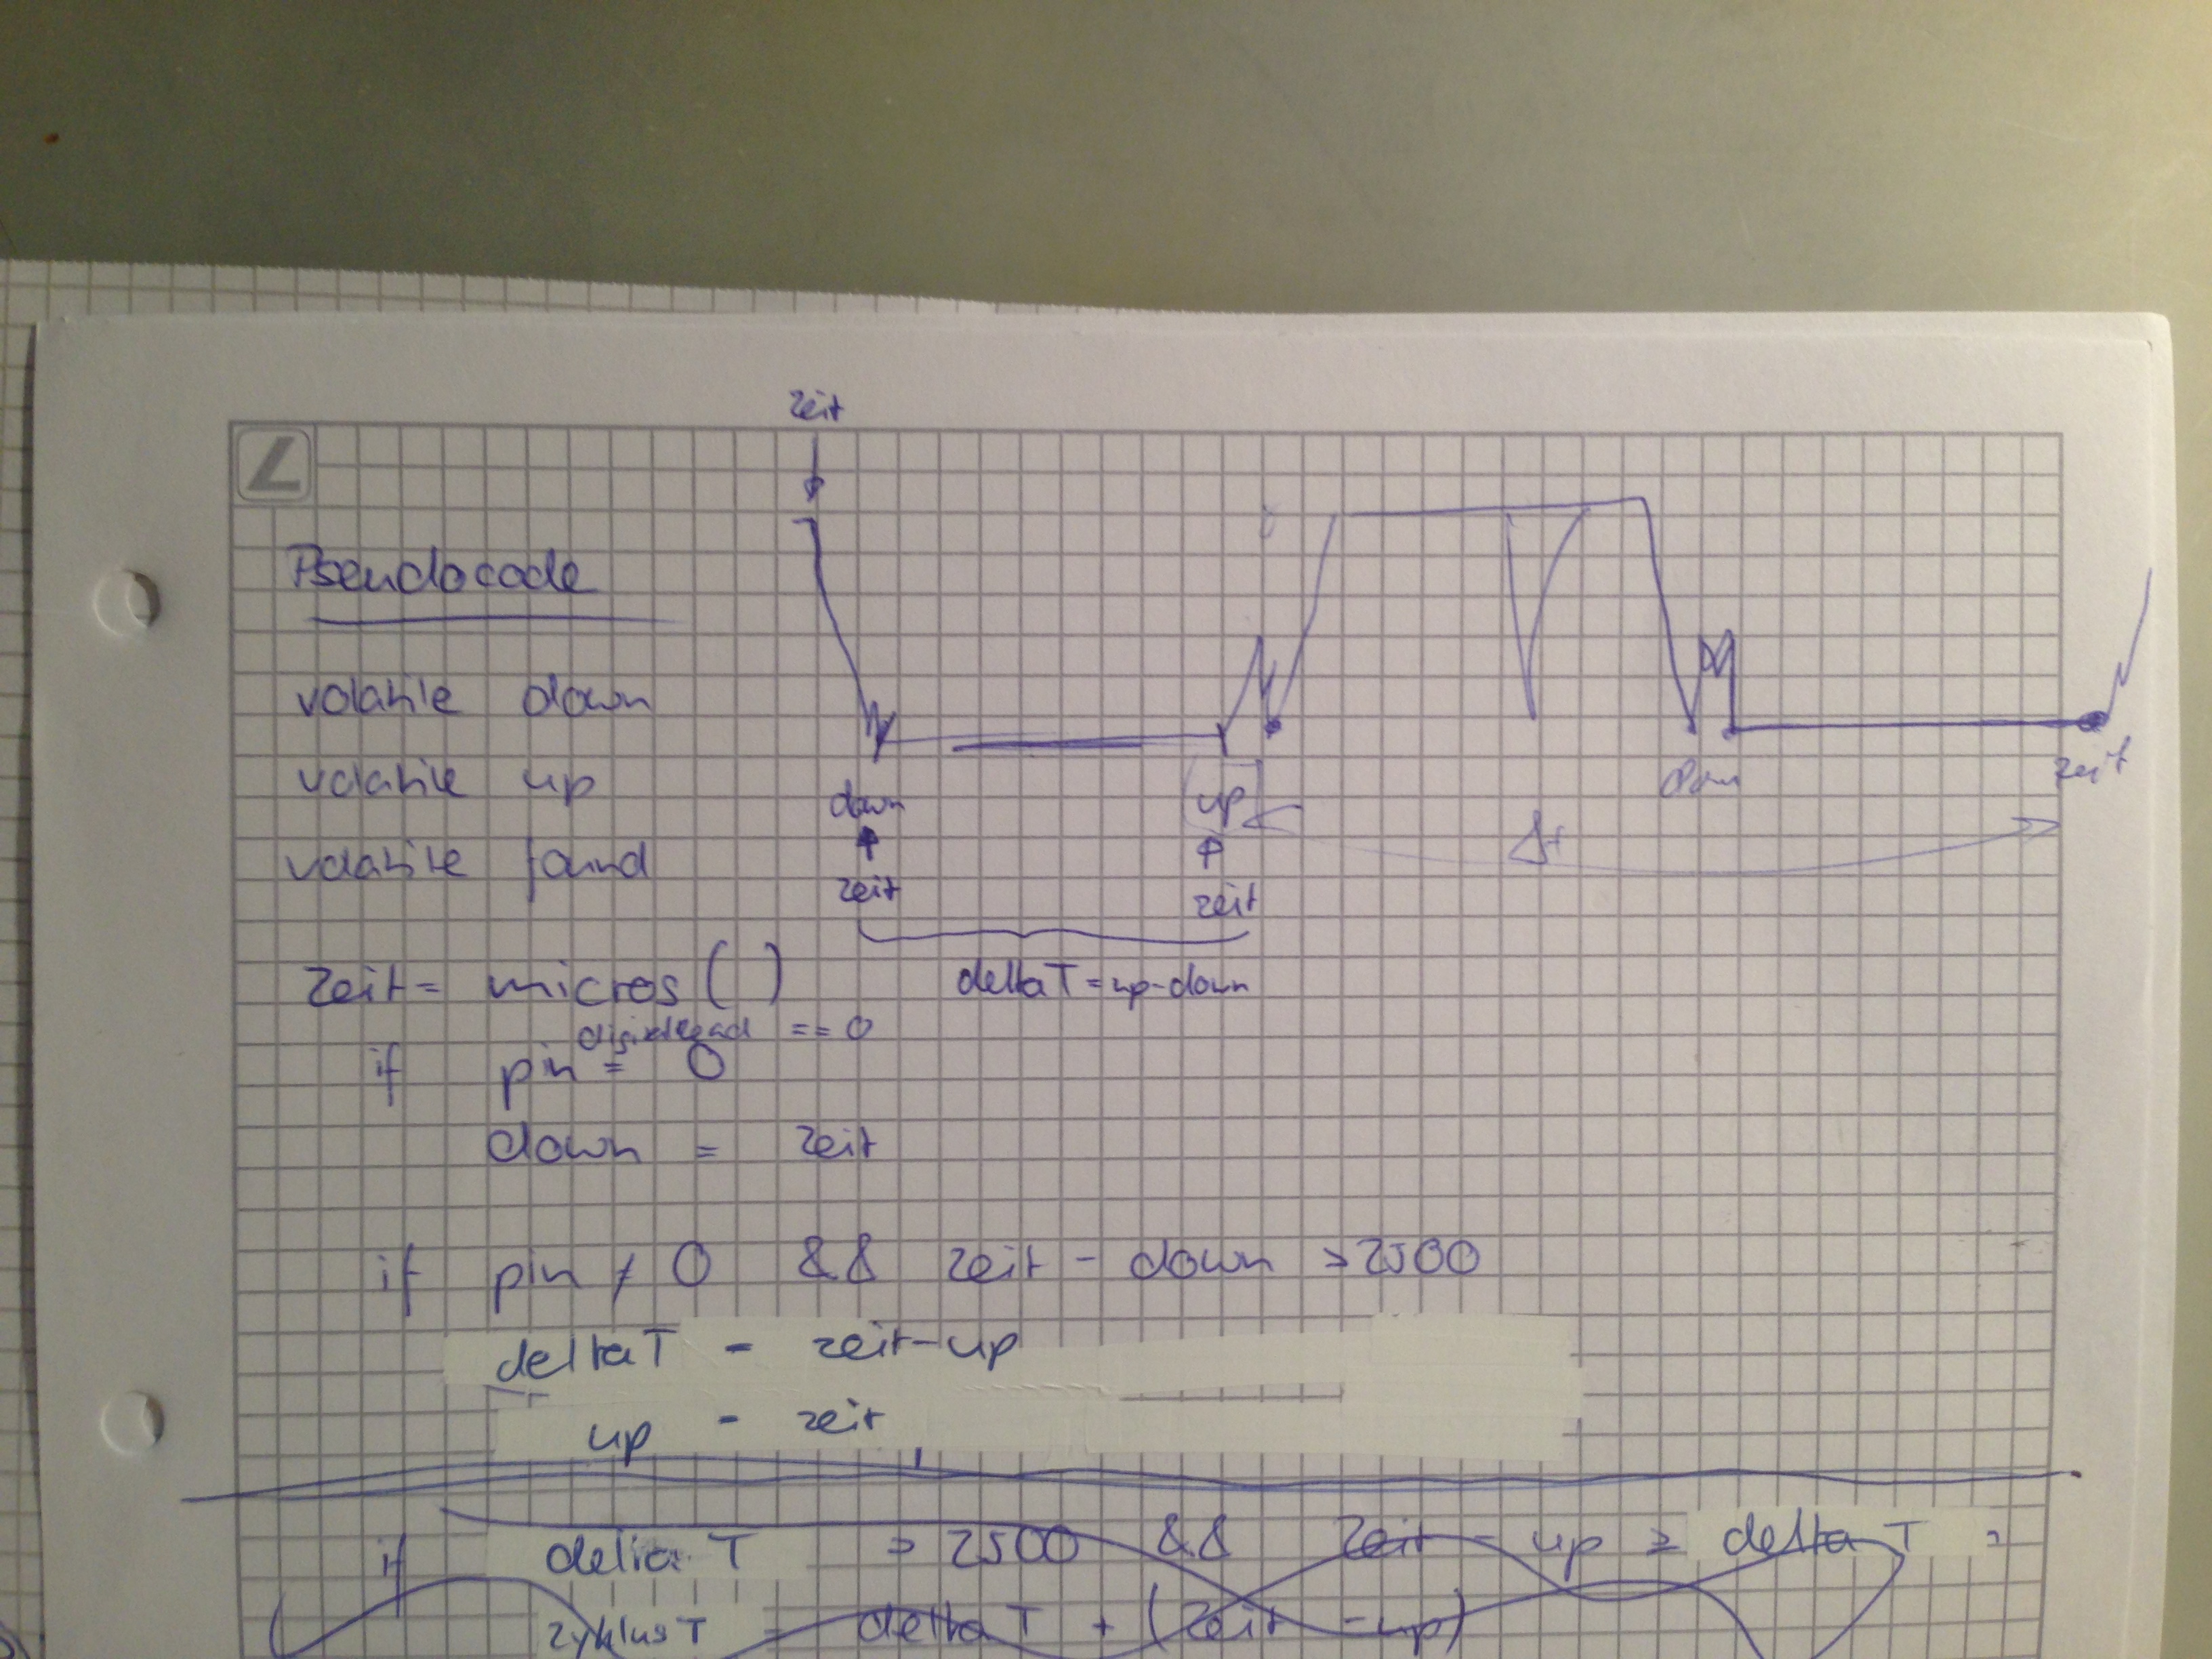 zeit
Pseudocode
volatile down
volatile up
volatile found
down
up
down
zeit
Δt
zeit
zeit
deltaT = up-down
zeit = micros ( )
digitalRead == 0
if pin = 0
down = zeit
if pin ≠ 0 && zeit - down > 2500
deltaT = zeit-up
up = zeit
if delta T > 2500 && zeit - up ≥ delta T
zyklusT = delta T + (zeit - up)